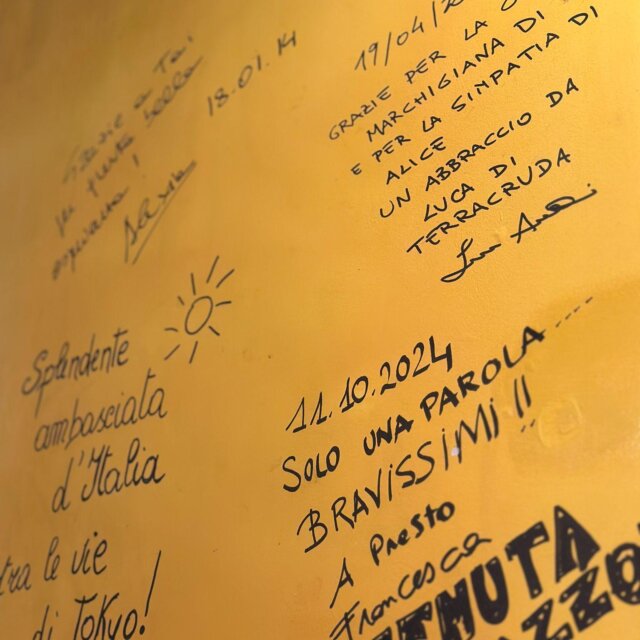 Grazie a Te!
per questa bella
18.01.14
19/04/20
GRAZIE PER LA
MARCHIGIANA DI
E PER LA SIMPATIA DI
ALICE
UN ABBRACCIO DA
LUCA DI
TERRACRUDA
Splendente
ambasciata
d'Italia
tra le vie
di Tokyo!
11.10.2024
SOLO UNA PAROLA....
BRAVISSIMI!!
A PRESTO
Francesca